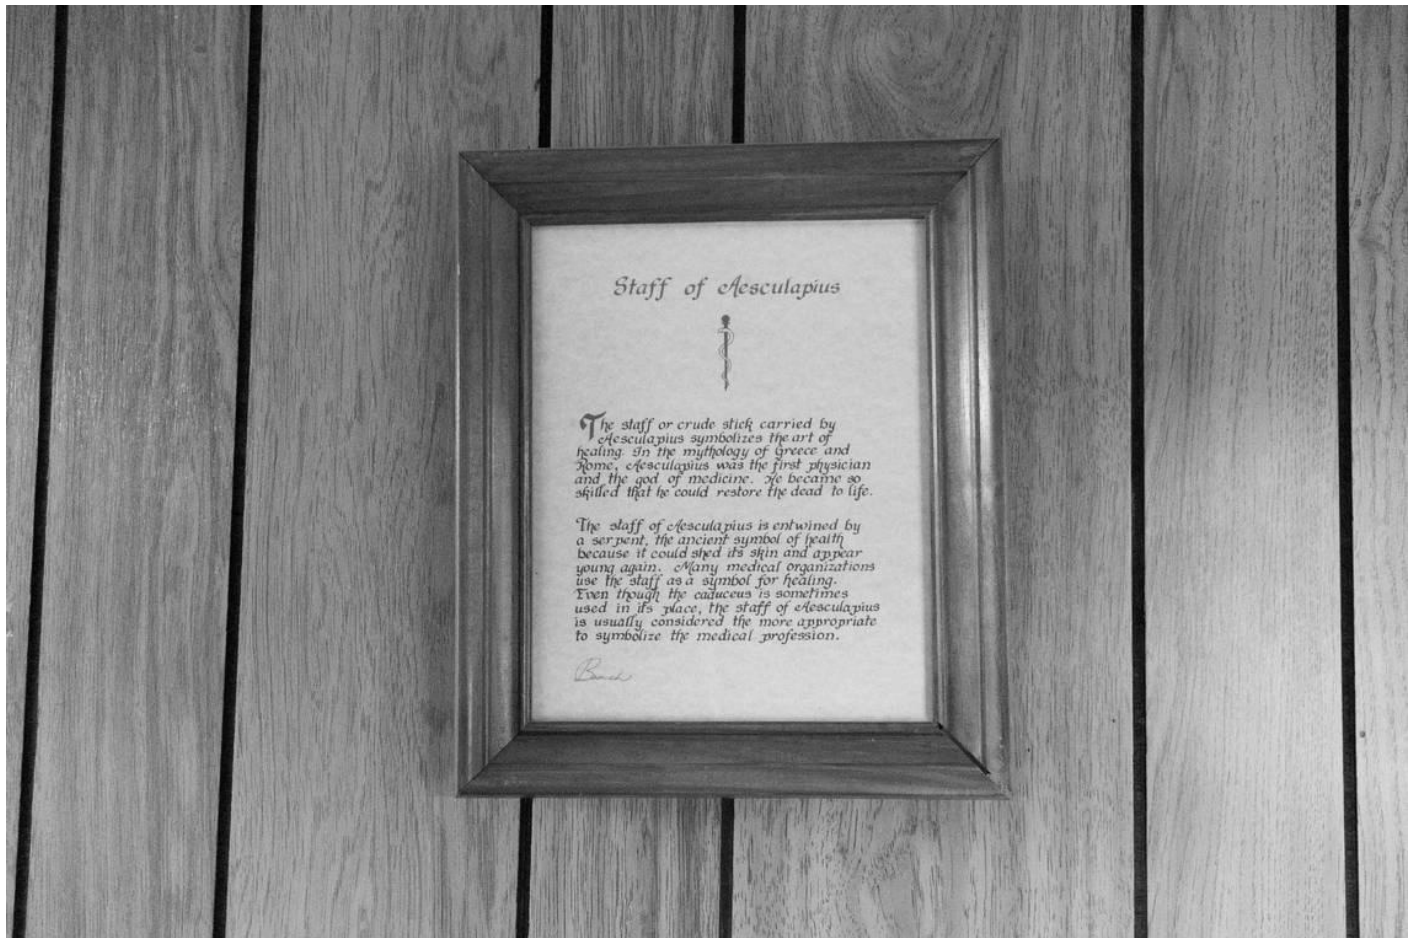 Staff of Aesculapius
The staff or crude stick carried by
Aesculapius symbolizes the art of
healing. In the mythology of Greece and
Rome, Aesculapius was the first physician
and the god of medicine. He became so
skilled that he could restore the dead to life.
The staff of Aesculapius is entwined by
a serpent, the ancient symbol of health
because it could shed its skin and appear
young again. Many medical organizations
use the staff as a symbol for healing.
Even though the caduceus is sometimes
used in its place, the staff of Aesculapius
is usually considered the more appropriate
to symbolize the medical profession.